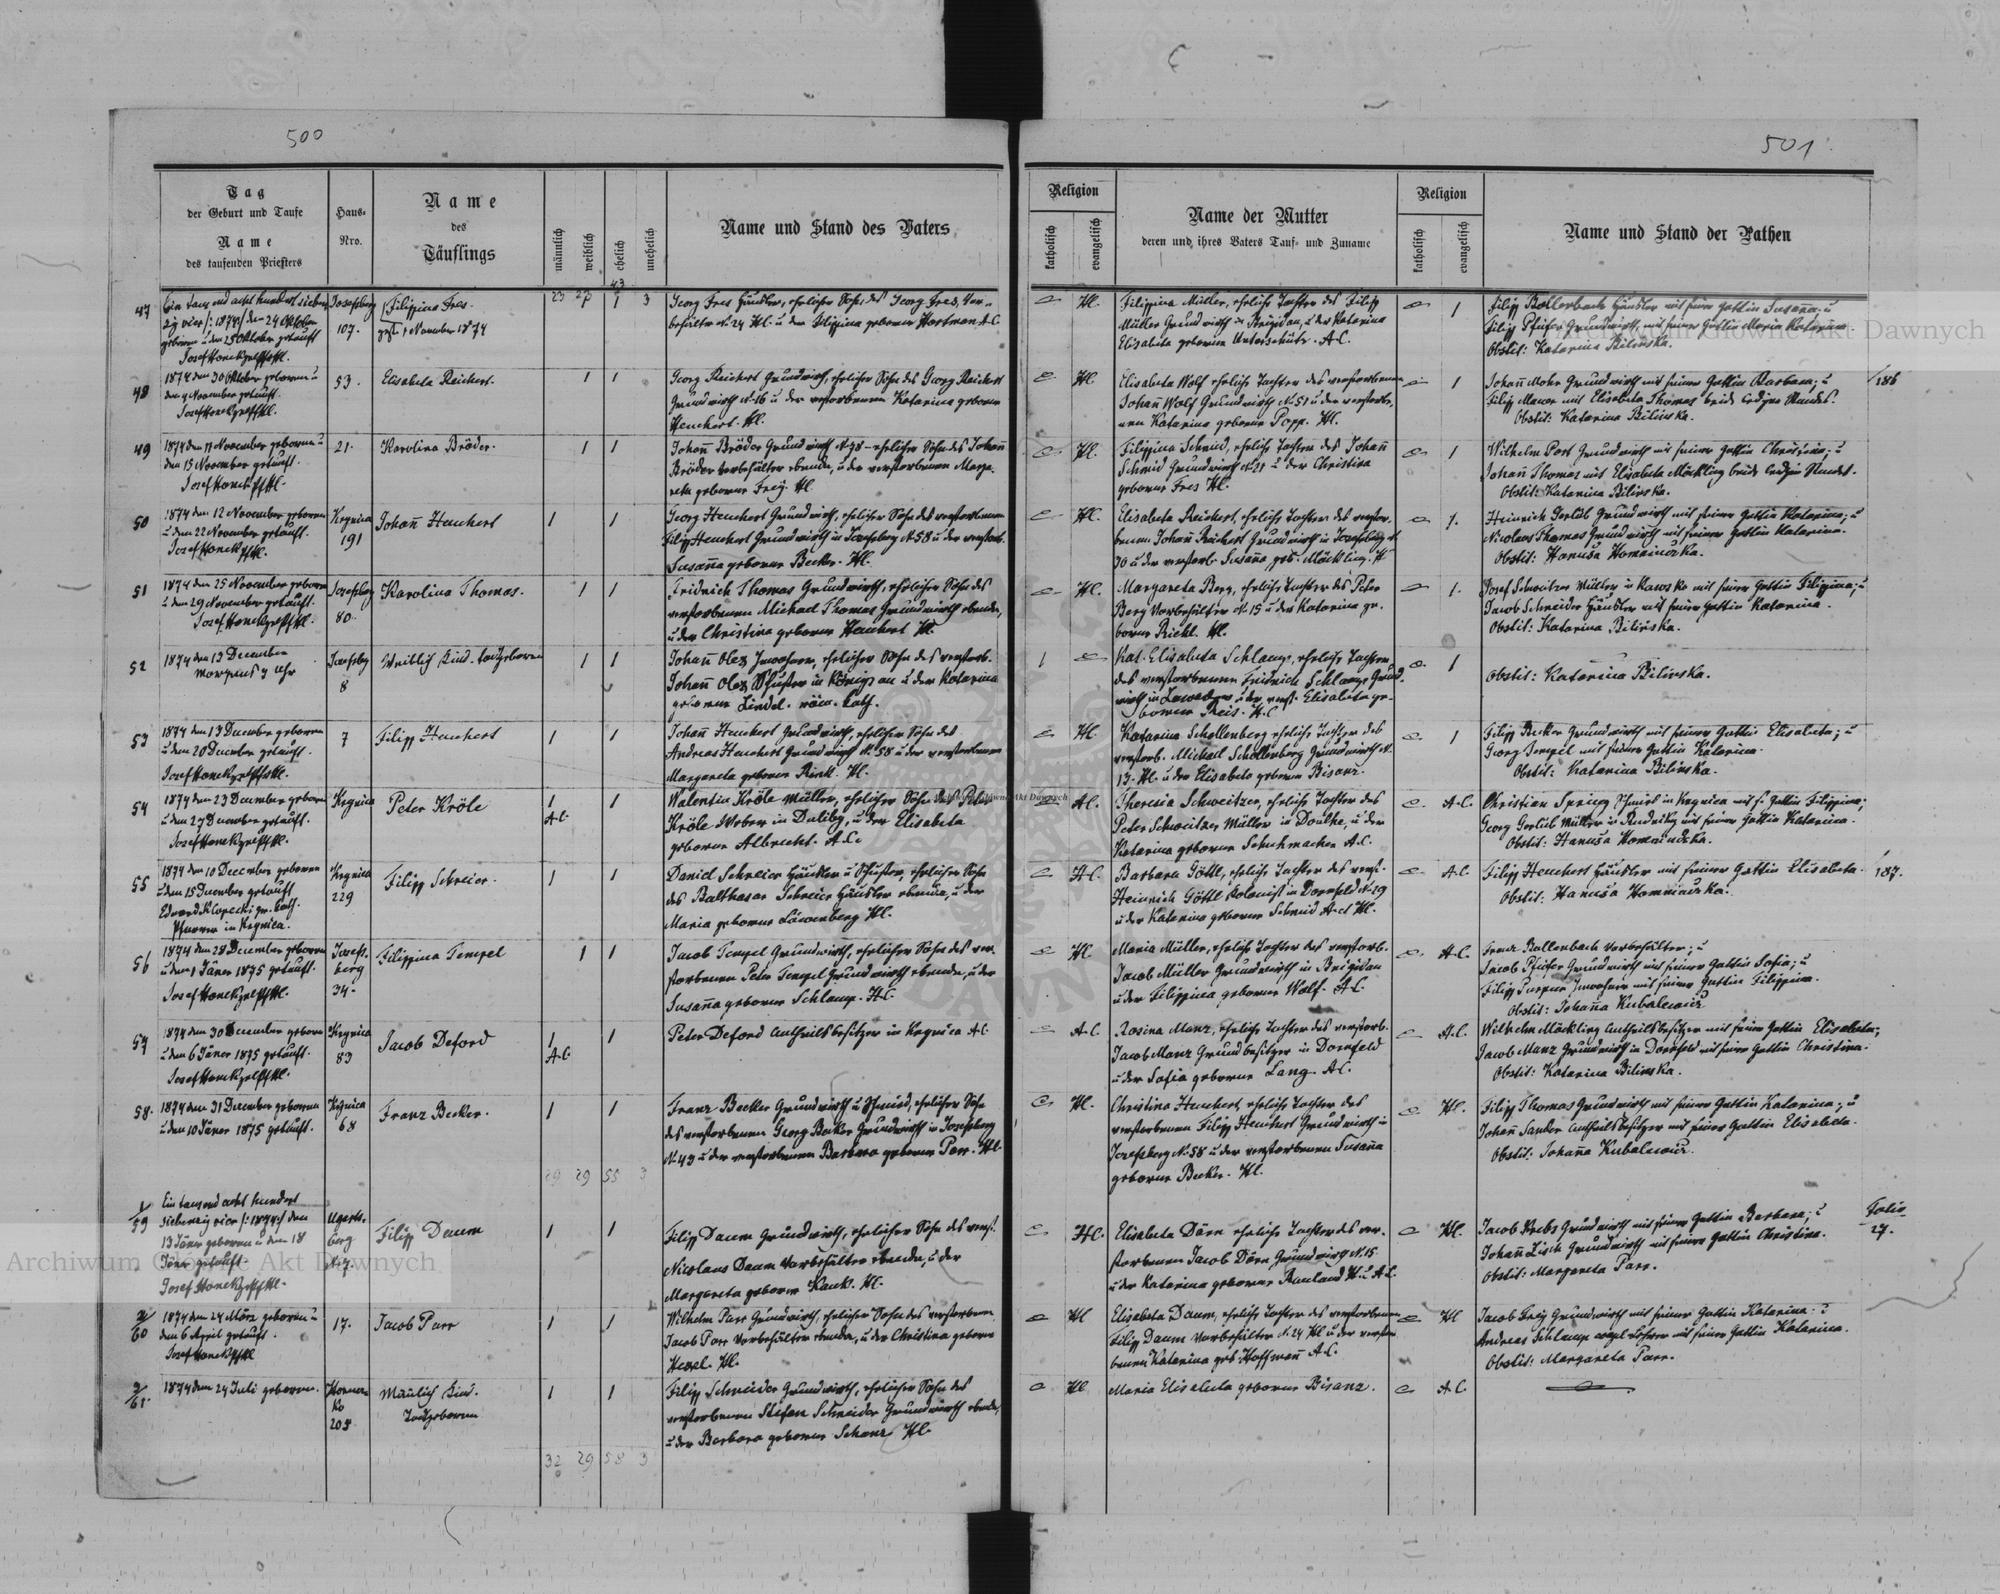 500
Tag
der Geburt und Taufe
Name
des taufenden Priesters
Haus-
Nro.
Name
des
Täuflings
männlich
weiblich
ehelich
unehelich
Name und Stand des Vaters
47
Josefsberg
107.
Filippina Fres.
gest. 1 November 1874
23 27 43 1 3
Georg Fres Häusler, ehelicher Sohn des Georg Fres, Vor-
behälter N. 24 HC u der Filippina geborene Hartman A.C.
48
1874 den 30 Oktober geboren u
den 4 November getauft.
53.
Elisabeta Reichert.
1 1
Georg Reichert Grundwirth, ehelicher Sohn des Georg Reichert
Grundwirth N. 16 u der verstorbenen Katarina geborene
Heuchert. HC.
49
den 15 November getauft.
21.
Karolina Bröder.
1 1
Johañ Bröder Grundwirth ehelicher Sohn des Johañ
Bröder Vorbehälter ebenda, u der verstorbenen Marga-
reta geborene Frey. HC
50
1874 den 12 November geboren
u den 22 November getauft.
Kegnica
191
Johañ Heuchert
1 1
Georg Heuchert Grundwirth, ehelicher Sohn des verstorbenen
Filipp Heuchert Grundwirth in Josefsberg N. 58 u der verstorb.
Susaña geborene Becker. HC.
51
1874 den 25 November geboren
u den 29 November getauft.
Josefsberg
80.
Karolina Thomas.
1 1
Fridrich Thomas Grundwirth, ehelicher Sohn des
verstorbenen Michael Thomas Grundwirth ebenda,
u der Christina geborene Heuchert HC.
52
1874 den 13 December
Josefsbg
8
Weiblich Kind. todtgeboren
1 1
Johañ Olex Inwohner, ehelicher Sohn des verstorb.
Johañ Olex Schuster in Königsau u der Katarina
geborene Lindel. röm. kath.
53
1874 den 13 December geboren
u den 20 December getauft.
7
Filipp Heuchert
1 1
Johañ Heuchert Grundwirth, ehelicher Sohn des
Andreas Heuchert Grundwirth N. 58 u der verstorbenen
Margareta geborene HC.
54
1874 den 23 December geboren
u den 27 December getauft.
Kegnica
Peter Kröle
1 1
A.C.
Walentin Kröle Müller, ehelicher Sohn des Peter
Kröle Weber in u der Elisabeta
geborene Albrecht. A.C.
55
1874 den 10 December geboren
u den 15 December getauft
Edward Klopecki gr. kath.
Pfarrer in Kegnica.
Kegnica
229
Filipp Schreier.
1 1
Daniel Schreier Häusler u Schuster, ehelicher Sohn
des Balthasar Schreier Häusler ebenda, u der
Maria geborene Löwenberg HC.
56
1874 den 28 December geboren
u den 1 Jäner 1875 getauft.
Josefs-
berg
34.
Filippina Tempel
1 1
Jacob Tempel Grundwirth, ehelicher Sohn des ver-
storbenen Peter Tempel Grundwirth ebenda, u der
Susaña geborene Schlamp. HC.
57
1874 den 30 December geboren
u den 6 Jäner 1875 getauft.
Kegnica
83
Jacob Deford
1 1
A.C.
Peter Deford Antheilsbesitzer in Kegnica A.C.
58.
1874 den 31 December geboren
u den 10 Jäner 1875 getauft.
Kegnica
68
Franz Becker.
1 1
Franz Becker Grundwirth u Schmied, ehelicher Sohn
des verstorbenen Georg Becker Grundwirth in Josefsberg
N. 43 u der verstorbenen Barbara geborene Parr. HC
29 29 55 3
1/59
Ein tausend acht hundert
siebenzig vier /: 1874 :/ den
13 Jäner geboren u den 18
Jäner getauft.
Ugarts-
berg
N. 7.
Filipp Daum
1 1
Filipp Daum Grundwirth, ehelicher Sohn des verst.
Nicolaus Daum Vorbehälter ebenda, u der
Margareta geborene HC.
2/60
1874 den 24 März geboren u
den 6 April getauft.
17.
Jacob Parr
1 1
Wilhelm Parr Grundwirth, ehelicher Sohn des verstorbenen
Jacob Parr Vorbehälter ebenda, u der Christina geborene
HC.
61.
1874 den 24 Juli geboren.
Mäñlich Kind.
Todtgeboren
1 1
Filipp Schneider Grundwirth, ehelicher Sohn des
verstorbenen Stefan Schneider Grundwirth ebenda,
u der Barbara geborene Schanz HC.
32 29 58 3
501
Religion
katholisch
evangelisch
Name der Mutter
deren und ihres Vaters Tauf- und Zuname
Religion
katholisch
evangelisch
Name und Stand der Pathen
HC.
Filippina Müller, eheliche Tochter des Filipp
Müller Grundwirth in Brigidau, u der Katarina
Elisabeta geborene Unterschütz. A.C.
1
Filipp Bollenbach Häusler mit seiner Gattin Susaña u
Filipp Pfeifer Grundwirth, mit seiner Gattin Maria Katarina.
Obstet: Katarina Bilinska.
HC
Elisabeta Wolf eheliche Tochter des verstorbenen
Johañ Wolf Grundwirth N. 51 u der verstorbe-
nen Katarina geborene Popp. HC.
1
Johañ Mohr Grundwirth mit seiner Gattin Barbara; u
Filipp Manz mit Elisabeta Thomas beide ledigen Standes.
Obstet: Katarina Bilinska.
186
HC.
Filippina Schmid, eheliche Tochter des Johañ
Schmid Grundwirth N. 21 u der Christina
geborene Fres HC.
1
Wilhelm Post Grundwirth mit seiner Gattin Christina; u
Johañ Thomas mit Elisabeta Mäckling beide ledigen Standes.
Obstet: Katarina Bilinska.
HC.
Elisabeta Reichert, eheliche Tochter des verstor-
benen Johañ Reichert Grundwirth in Josefsberg N.
30 u der verstorb. Susaña geb. Mäckling. HC
1.
Heinrich Gerlib Grundwirth mit seiner Gattin Katarina; u
Nicolaus Thomas Grundwirth mit seiner Gattin Katarina.
Obstet: Hanuša Homeniuzka.
HC.
Margareta Berg, eheliche Tochter des Peter
Berg Vorbehälter N. 15 u der Katarina ge-
borene Riehl. HC.
1.
Josef Schweitzer Müller in Kawsko mit seiner Gattin Filippina; u
Jacob Schneider Häusler mit seiner Gattin Katarina.
Obstet: Katarina Bilinska.
1
Kat. Elisabeta Schlamp, eheliche Tochter
des verstorbenen Fridrich Schlamp Grund-
wirth in u der verst. Elisabeta ge-
borene Reis. H.C
1
Obstet: Katarina Bilinska.
HC
Katarina Schollenberg eheliche Tochter des
verstorb. Michael Schollenberg Grundwirth N.
13. HC. u der Elisabeta geborene Bisanz.
1
Filipp Becker Grundwirth mit seiner Gattin Elisabeta; u
Georg Tempel mit seiner Gattin Katarina.
Obstet: Katarina Bilinska.
A.C.
Theresia Schweitzer, eheliche Tochter des
Peter Schweitzer Müller in u der
Katarina geborene Schuhmacher A.C.
A.C.
Christian Spring Schmied in Kegnica mit s. Gattin Filippina;
Georg Gerlib Müller in mit seiner Gattin Katarina.
Obstet: Hanuša Homeniuzka.
H.C.
Barbara Göttl, eheliche Tochter des verst.
Heinrich Göttl Kolonist in Dornfeld N. 29
u der Katarina geborene Schmid A et HC.
A.C.
Filipp Heuchert Häusler mit seiner Gattin Elisabeta.
Obstet: Hanuša Homeniuzka.
187.
HC
Maria Müller, eheliche Tochter des verstorb.
Jacob Müller Grundwirth in Brigidau
u der Filippina geborene Wolf. A.C.
H.C.
Franz Bollenbach Vorbehälter; u
Jacob Pfeifer Grundwirth mit seiner Gattin Sofia; u
Filipp Inwohner mit seiner Gattin Filippina.
Obstet: Johaña Kubalewicz
A.C.
Rosina Manz, eheliche Tochter des verstorb.
Jacob Manz Grundbesitzer in Dornfeld
u der Sofia geborene Lang. A.C.
H.C.
Wilhelm Mäckling Antheilsbesitzer mit seiner Gattin Elisabeta;
Jacob Manz Grundwirth in Dornfeld mit seiner Gattin Christina.
Obstet: Katarina Bilinska.
HC.
Christina Heuchert, eheliche Tochter des
verstorbenen Filipp Heuchert Grundwirth in
Josefsberg N. 58 u der verstorbenen Susaña
geborene Becker. HC.
HC.
Filipp Thomas Grundwirth mit seiner Gattin Katarina; u
Johañ Sander Antheilsbesitzer mit seiner Gattin Elisabeta.
Obstet: Johaña Kubalewicz.
H.C.
Elisabeta Dörn eheliche Tochter des ver-
storbenen Jacob Dörn Grundwirth N. 15
u der Katarina geborene Rauland H. u A.C.
HC.
Jacob Krebs Grundwirth mit seiner Gattin Barbara; u
Johañ Lisch Grundwirth mit seiner Gattin Christina.
Obstet: Margareta Parr.
Folio
27.
HC
Elisabeta Daum, eheliche Tochter des verstorbenen
Filipp Daum Vorbehälter N. 24 HC u der verstor-
benen Katarina geb Hoffmañ A.C.
HC
Jacob Frey Grundwirth mit seiner Gattin Katarina. u
Andreas Schlamp evgl Lehrer mit seiner Gattin Katarina.
Obstet: Margareta Parr.
HC
Maria Elisabeta geborene Bisanz.
A.C.
Archiwum Główne Akt Dawnych
Archiwum Główne Akt Dawnych
Archiwum Główne Akt Dawnych